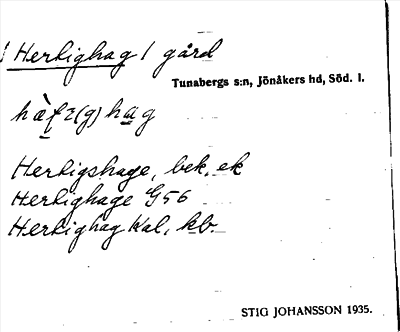 Hertighag / gård
Tunabergs s:n, Jönåkers hd, Söd. l.
Hertigshage, bek. ek
Hertighage G56
Hertighag Kal, kb.
STIG JOHANSSON 1935.